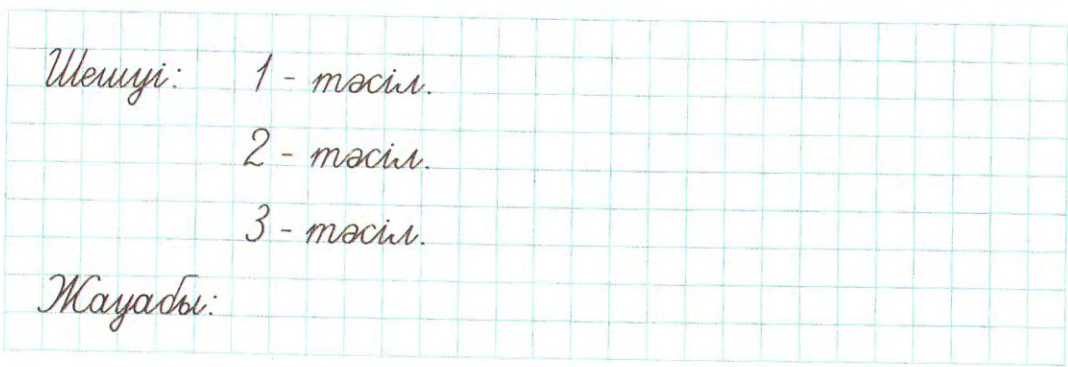 Шешуі: 1 - тәсіл.
2 - тәсіл.
3 - тәсіл.
Жауабы: